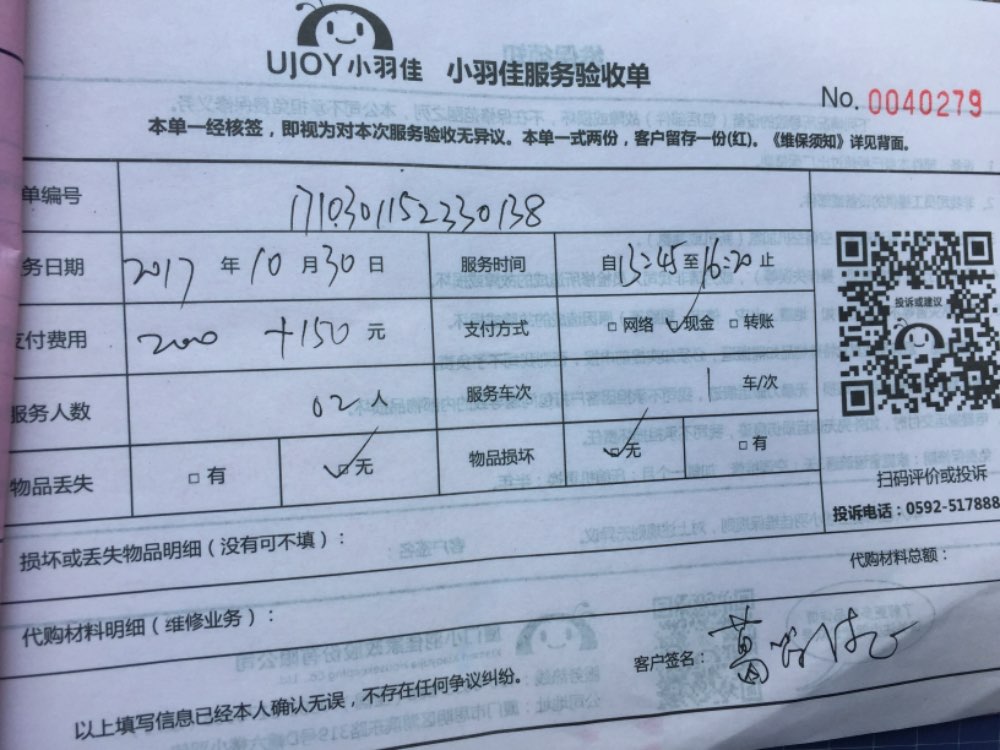 UJOY小羽佳 小羽佳服务验收单
No. 0040279
本单一经核签，即视为对本次服务验收无异议。本单一式两份，客户留存一份(红)。《维保须知》详见背面。
单编号 1710301152330138
务日期 2017 年 10 月 30 日 服务时间 自13:45至16:20止
支付费用 200 +150 元 支付方式 □网络 ☑现金 □转账
服务人数 02人 服务车次 1 车/次
物品丢失 □有 ☑无 物品损坏 ☑无 □有
投诉或建议
扫码评价或投诉
投诉电话：0592-517888
损坏或丢失物品明细（没有可不填）：
代购材料总额：
代购材料明细（维修业务）：
客户签名：
以上填写信息已经本人确认无误，不存在任何争议纠纷。